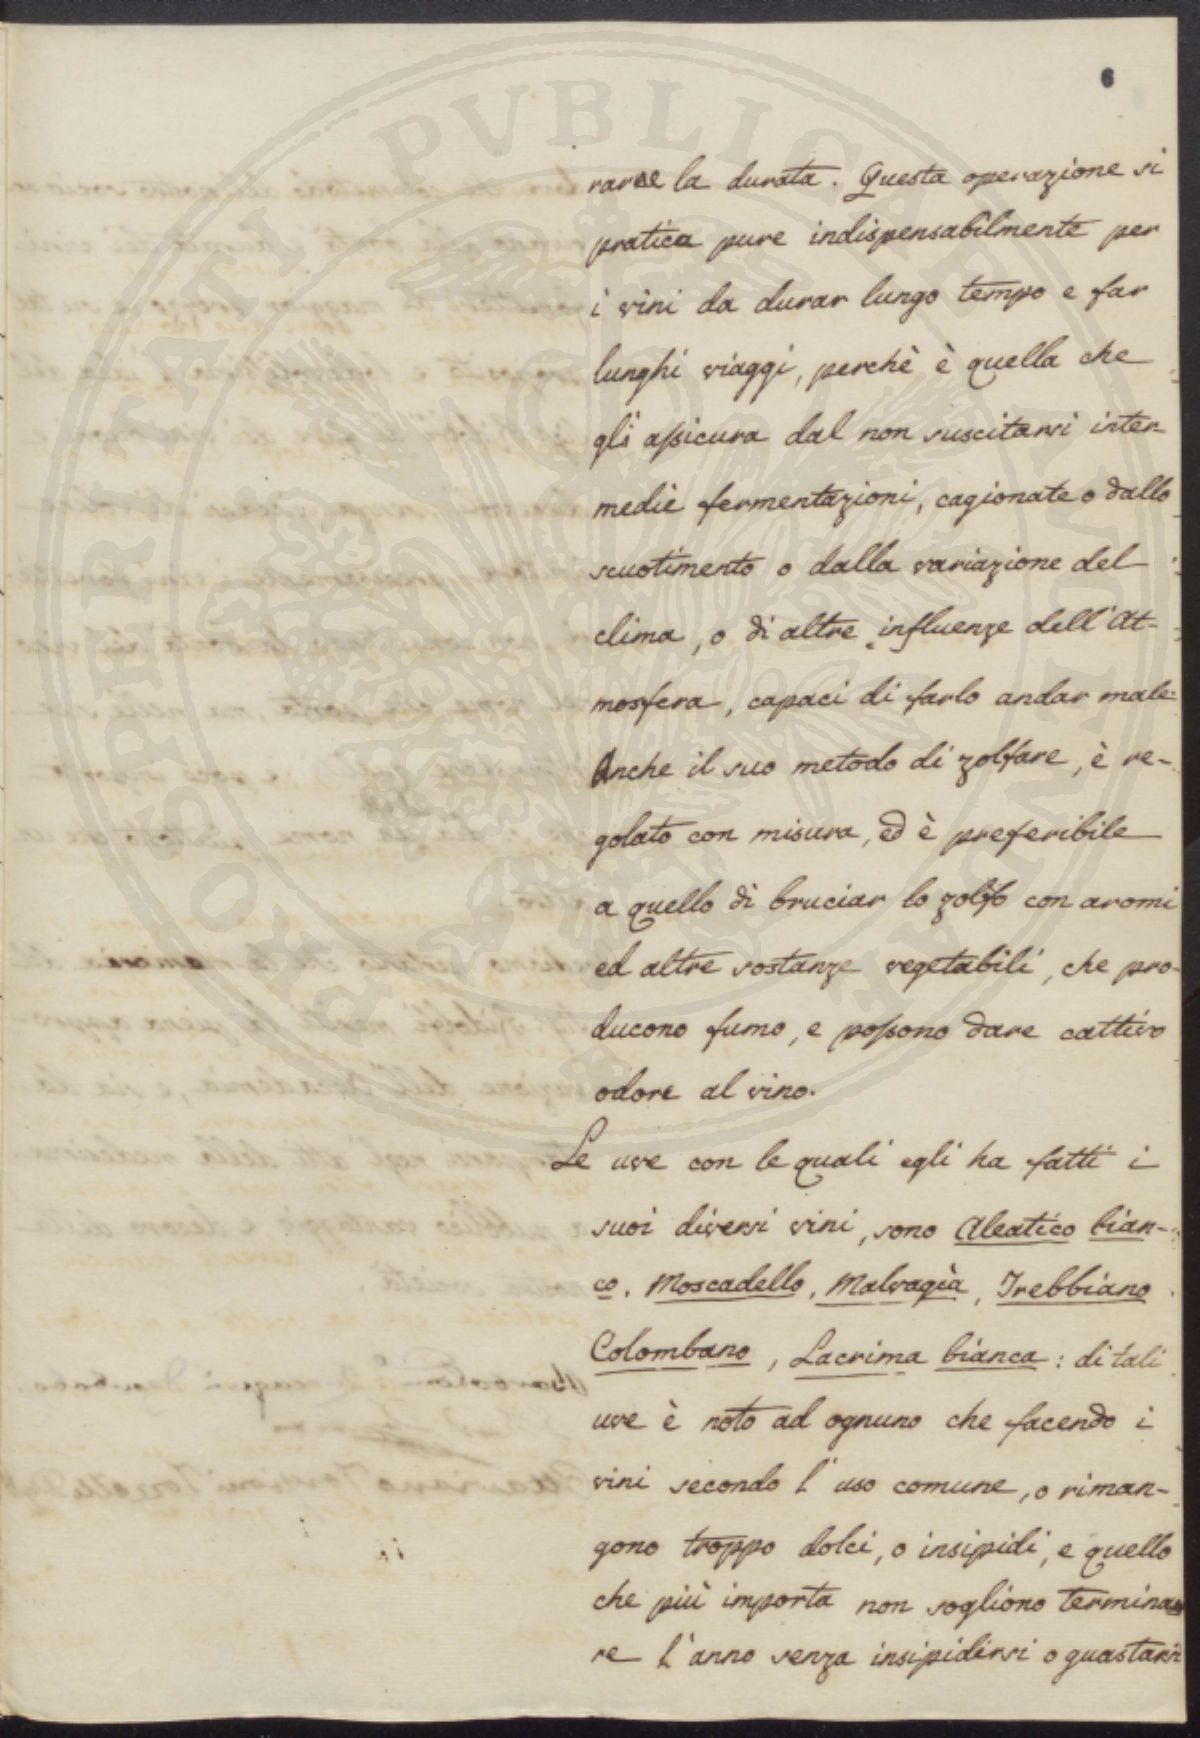 PROSPERITATI PVBLICAE AVGENDAE
6
rarne la durata. Questa operazione si
pratica pure indispensabilmente per
i vini da durar lungo tempo e far
lunghi viaggi, perchè è quella che
gli assicura dal non suscitarsi inter-
medie fermentazioni, cagionate o dallo
scuotimento o dalla variazione del
clima, o di altre influenze dell'At-
mosfera, capaci di farlo andar male:
Anche il suo metodo di zolfare, è re-
golato con misura, ed è preferibile
a quello di bruciar lo zolfo con aromi
ed altre sostanze vegetabili, che pro-
ducono fumo, e possono dare cattivo
odore al vino.
Le uve con le quali egli ha fatti i
suoi diversi vini, sono Aleatico bian-
co, Moscadello, Malvagìa, Trebbiano
Colombano, Lacrima bianca: di tali
uve è noto ad ognuno che facendo i
vini secondo l'uso comune, o riman-
gono troppo dolci, o insipidi, e quello
che più importa non sogliono termina
re l'anno senza insipidirsi o guastarsi